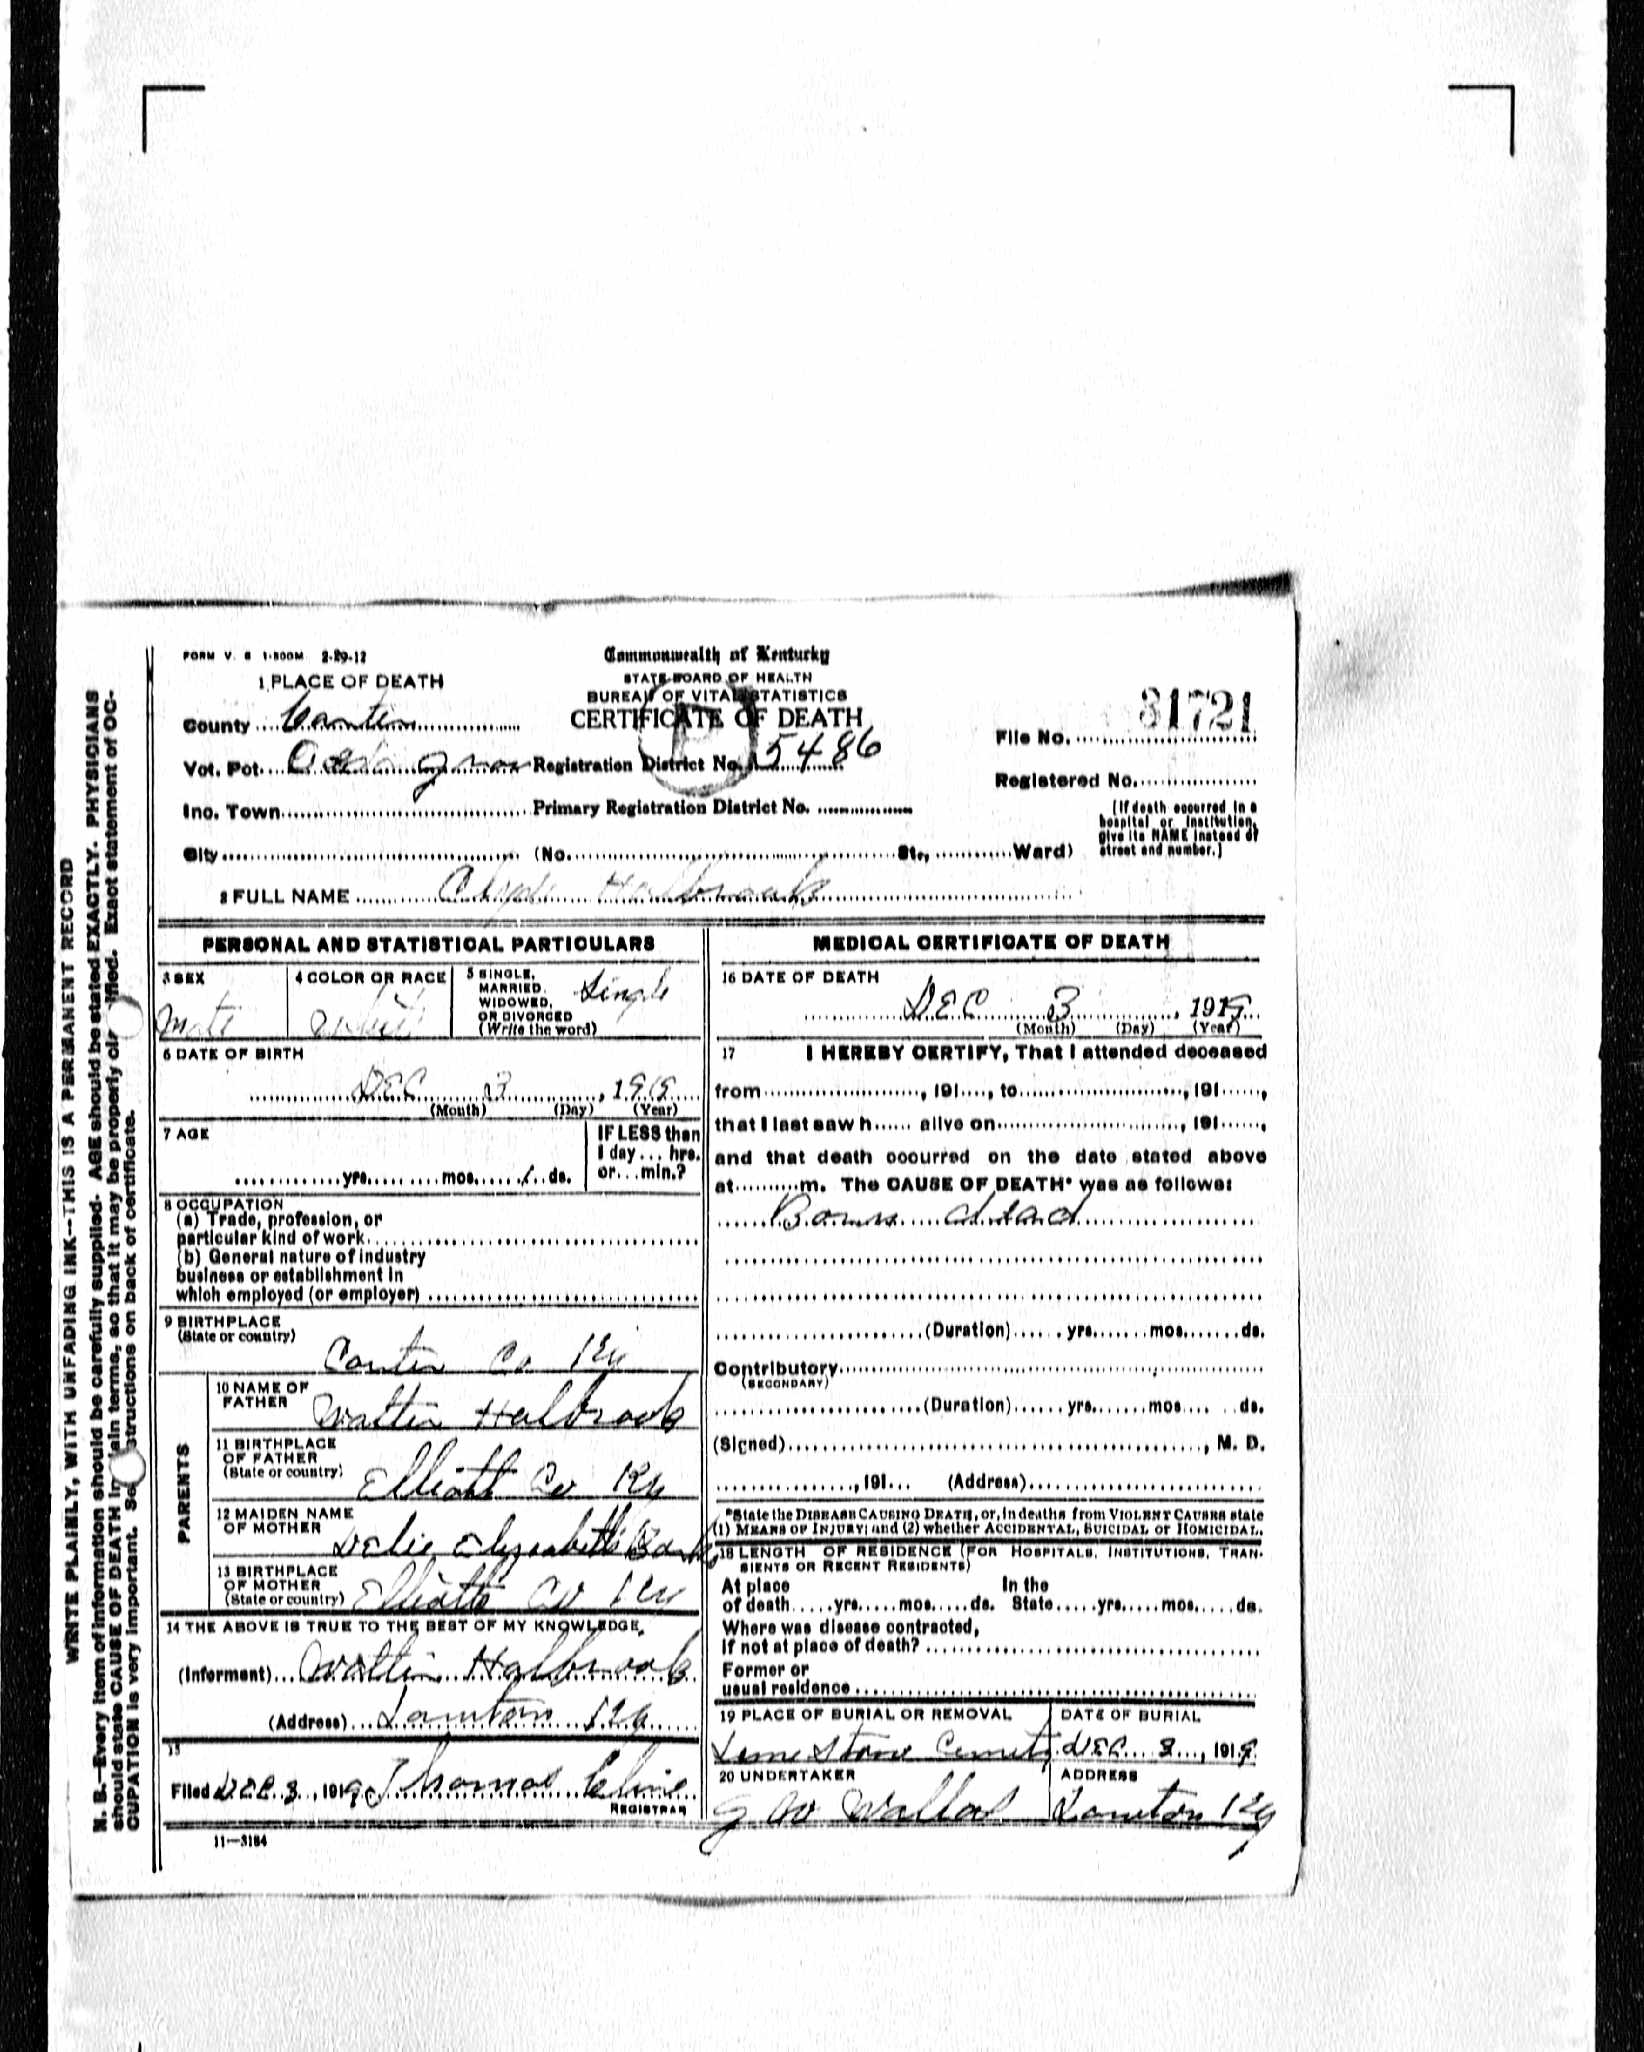 FORM V. S 1-500M 2-29-12
Commonwealth of Kentucky
STATE BOARD OF HEALTH
BUREAU OF VITAL STATISTICS
CERTIFICATE OF DEATH
1 PLACE OF DEATH
County Carter
File No. 31721
Vot. Pct. Registration District No. 5486
Registered No.
Inc. Town Primary Registration District No.
(If death occurred in a hospital or institution, give its NAME instead of street and number.)
City (No. St., Ward)
2 FULL NAME Clyde Holbrook
PERSONAL AND STATISTICAL PARTICULARS
3 SEX Male
4 COLOR OR RACE White
5 SINGLE, MARRIED, WIDOWED, OR DIVORCED (Write the word) Single
6 DATE OF BIRTH
DEC 3, 1919
(Month) (Day) (Year)
7 AGE
yrs. mos. 1 ds.
IF LESS than 1 day... hrs. or...min.?
8 OCCUPATION
(a) Trade, profession, or
particular kind of work
(b) General nature of industry
business or establishment in
which employed (or employer)
9 BIRTHPLACE
(State or country)
Carter Co Ky
PARENTS
10 NAME OF FATHER Walter Holbrook
11 BIRTHPLACE OF FATHER (State or country) Elliott Co Ky
12 MAIDEN NAME OF MOTHER Delie Elyzabeth
13 BIRTHPLACE OF MOTHER (State or country) Elliott Co Ky
14 THE ABOVE IS TRUE TO THE BEST OF MY KNOWLEDGE
(Informent) Walter Holbrook
(Address) Lawton Ky
15
Filed DEC 3, 1919 Thomas Cline
REGISTRAR
11—3184
MEDICAL CERTIFICATE OF DEATH
16 DATE OF DEATH
DEC 3, 1919
(Month) (Day) (Year)
17 I HEREBY CERTIFY, That I attended deceased
from, 191, to, 191,
that I last saw h alive on, 191,
and that death occurred on the date stated above
at m. The CAUSE OF DEATH* was as follows:
Born dead
(Duration) yrs. mos. ds.
Contributory
(SECONDARY)
(Duration) yrs. mos. ds.
(Signed), M. D.
, 191 (Address)
*State the DISEASE CAUSING DEATH, or, in deaths from VIOLENT CAUSES state
(1) MEANS OF INJURY; and (2) whether ACCIDENTAL, SUICIDAL or HOMICIDAL.
18 LENGTH OF RESIDENCE (FOR HOSPITALS, INSTITUTIONS, TRAN-
SIENTS OR RECENT RESIDENTS)
At place In the
of death yrs. mos. ds. State yrs. mos. ds.
Where was disease contracted,
If not at place of death?
Former or
usual residence
19 PLACE OF BURIAL OR REMOVAL DATE OF BURIAL
Lime Stone DEC 3, 1919
20 UNDERTAKER ADDRESS
Lawton Ky
WRITE PLAINLY, WITH UNFADING INK--THIS IS A PERMANENT RECORD
N. B.—Every item of information should be carefully supplied. AGE should be stated EXACTLY. PHYSICIANS
should state CAUSE OF DEATH in plain terms, so that it may be properly classified. Exact statement of OC-
CUPATION is very important. See instructions on back of certificate.